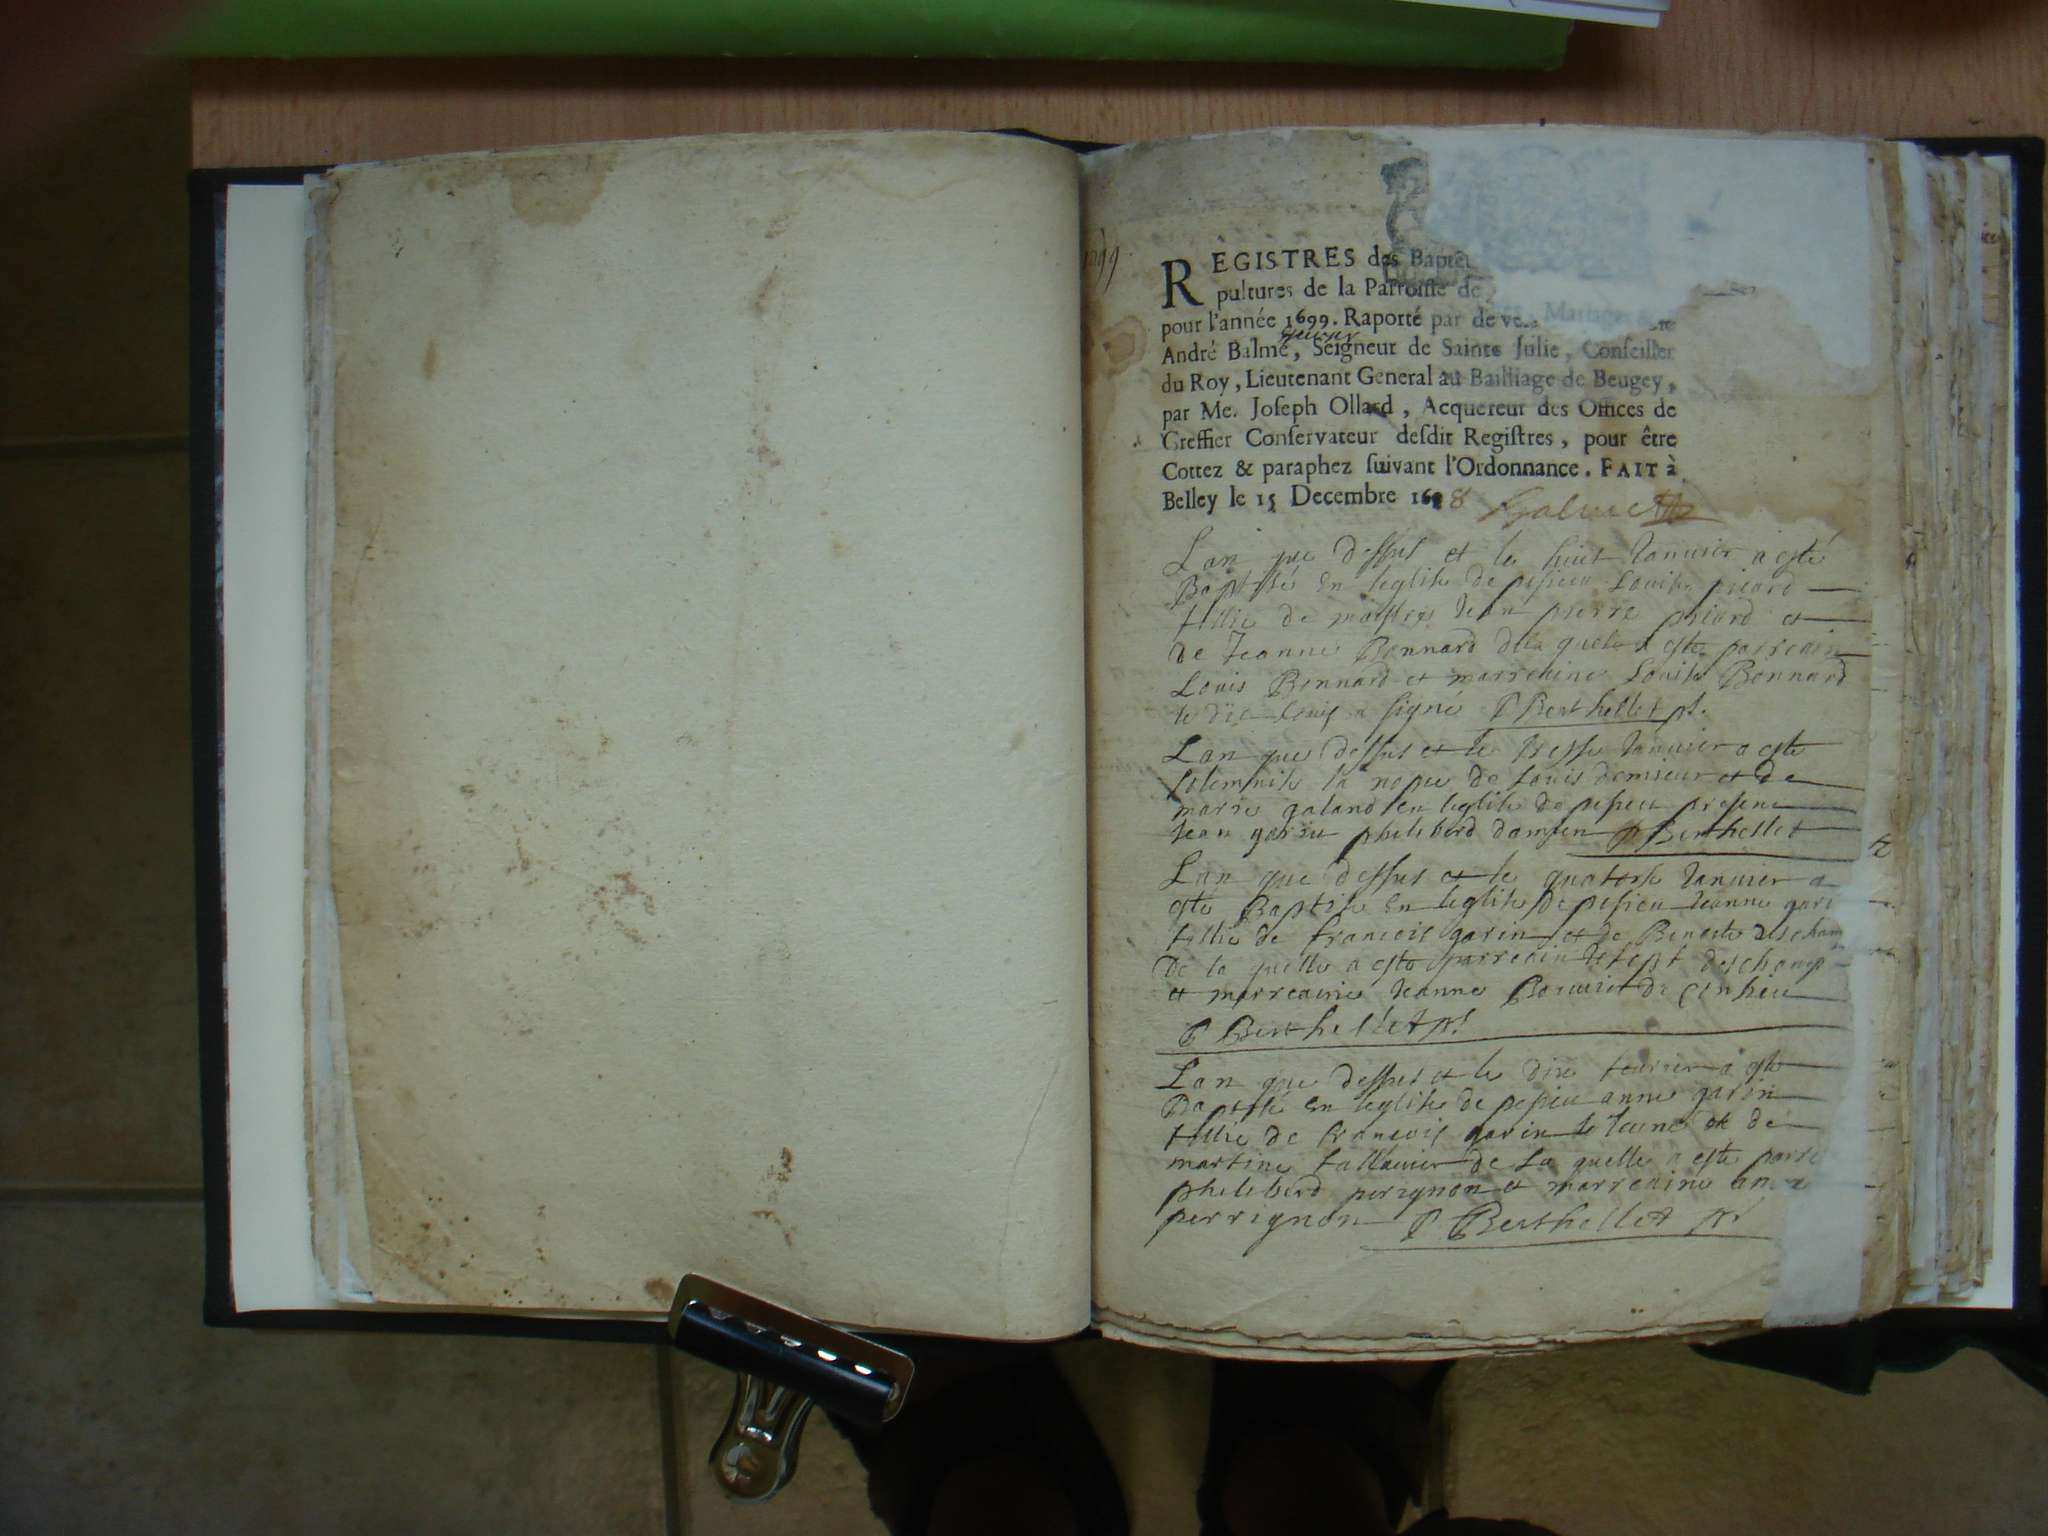 1699
REGISTRES des Baptê
pultures de la Parroisse de
pour l'année 1699. Raporté par deve
André Balme, Seigneur de Sainte Julie, Conseiller
du Roy, Lieutenant General au Bailliage de Beugey,
par Me. Joseph Ollard, Acquereur des Offices de
Greffier Conservateur desdit Registres, pour être
Cottez & paraphez suivant l'Ordonnance. FAIT à
Belley le 15 Decembre 1698 Balme
Lan que dessus et le huit Januier a esté
Baptisée en leglise de pesieu Louise piard
fillie de maistre Jean pierre phiard et
de Jeanne Bonnard de la quelle a este parrain
Louis Bonnard et marraine Louise Bonnard
le dit Louis a signé P Berthellet
Lan que dessus et le tresse Januier a este
solemnise la nopce de Louis demieur et de
marie galand en leglise de pesieu present
Jean philiberd P Berthellet
Lan que dessus et le quatorse Januier a
esté Baptise en leglise de pesieu Jeanne gari
fillie de francois garin et de Benoite descham
De la quelle a este parrain deschamp
et marreaine Jeanne de
P Berthellet
Lan que dessus et le dix feurier a este
Baptisé en leglise de pesieu anne garin
fillie de francois garin le Jeune et de
martine de La quelle a este parre
philiberd perrignon et marreaine anne
perrignon P Berthellet